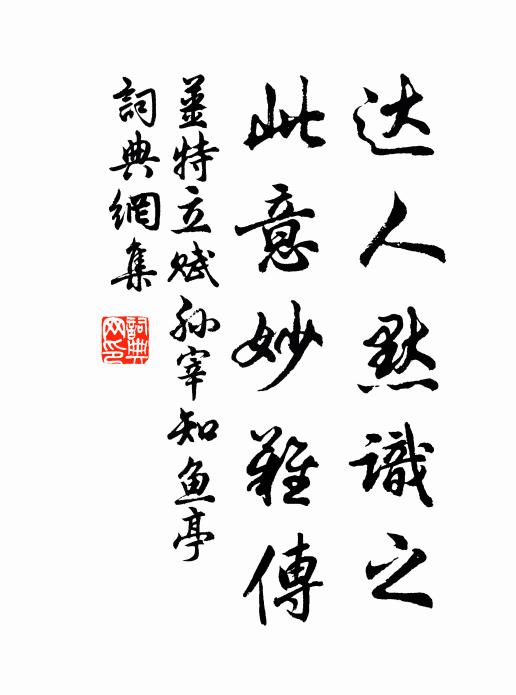 达人默識之
此意妙難傳
姜特立赋孙宰知鱼亭
詞典網集
詞典网印